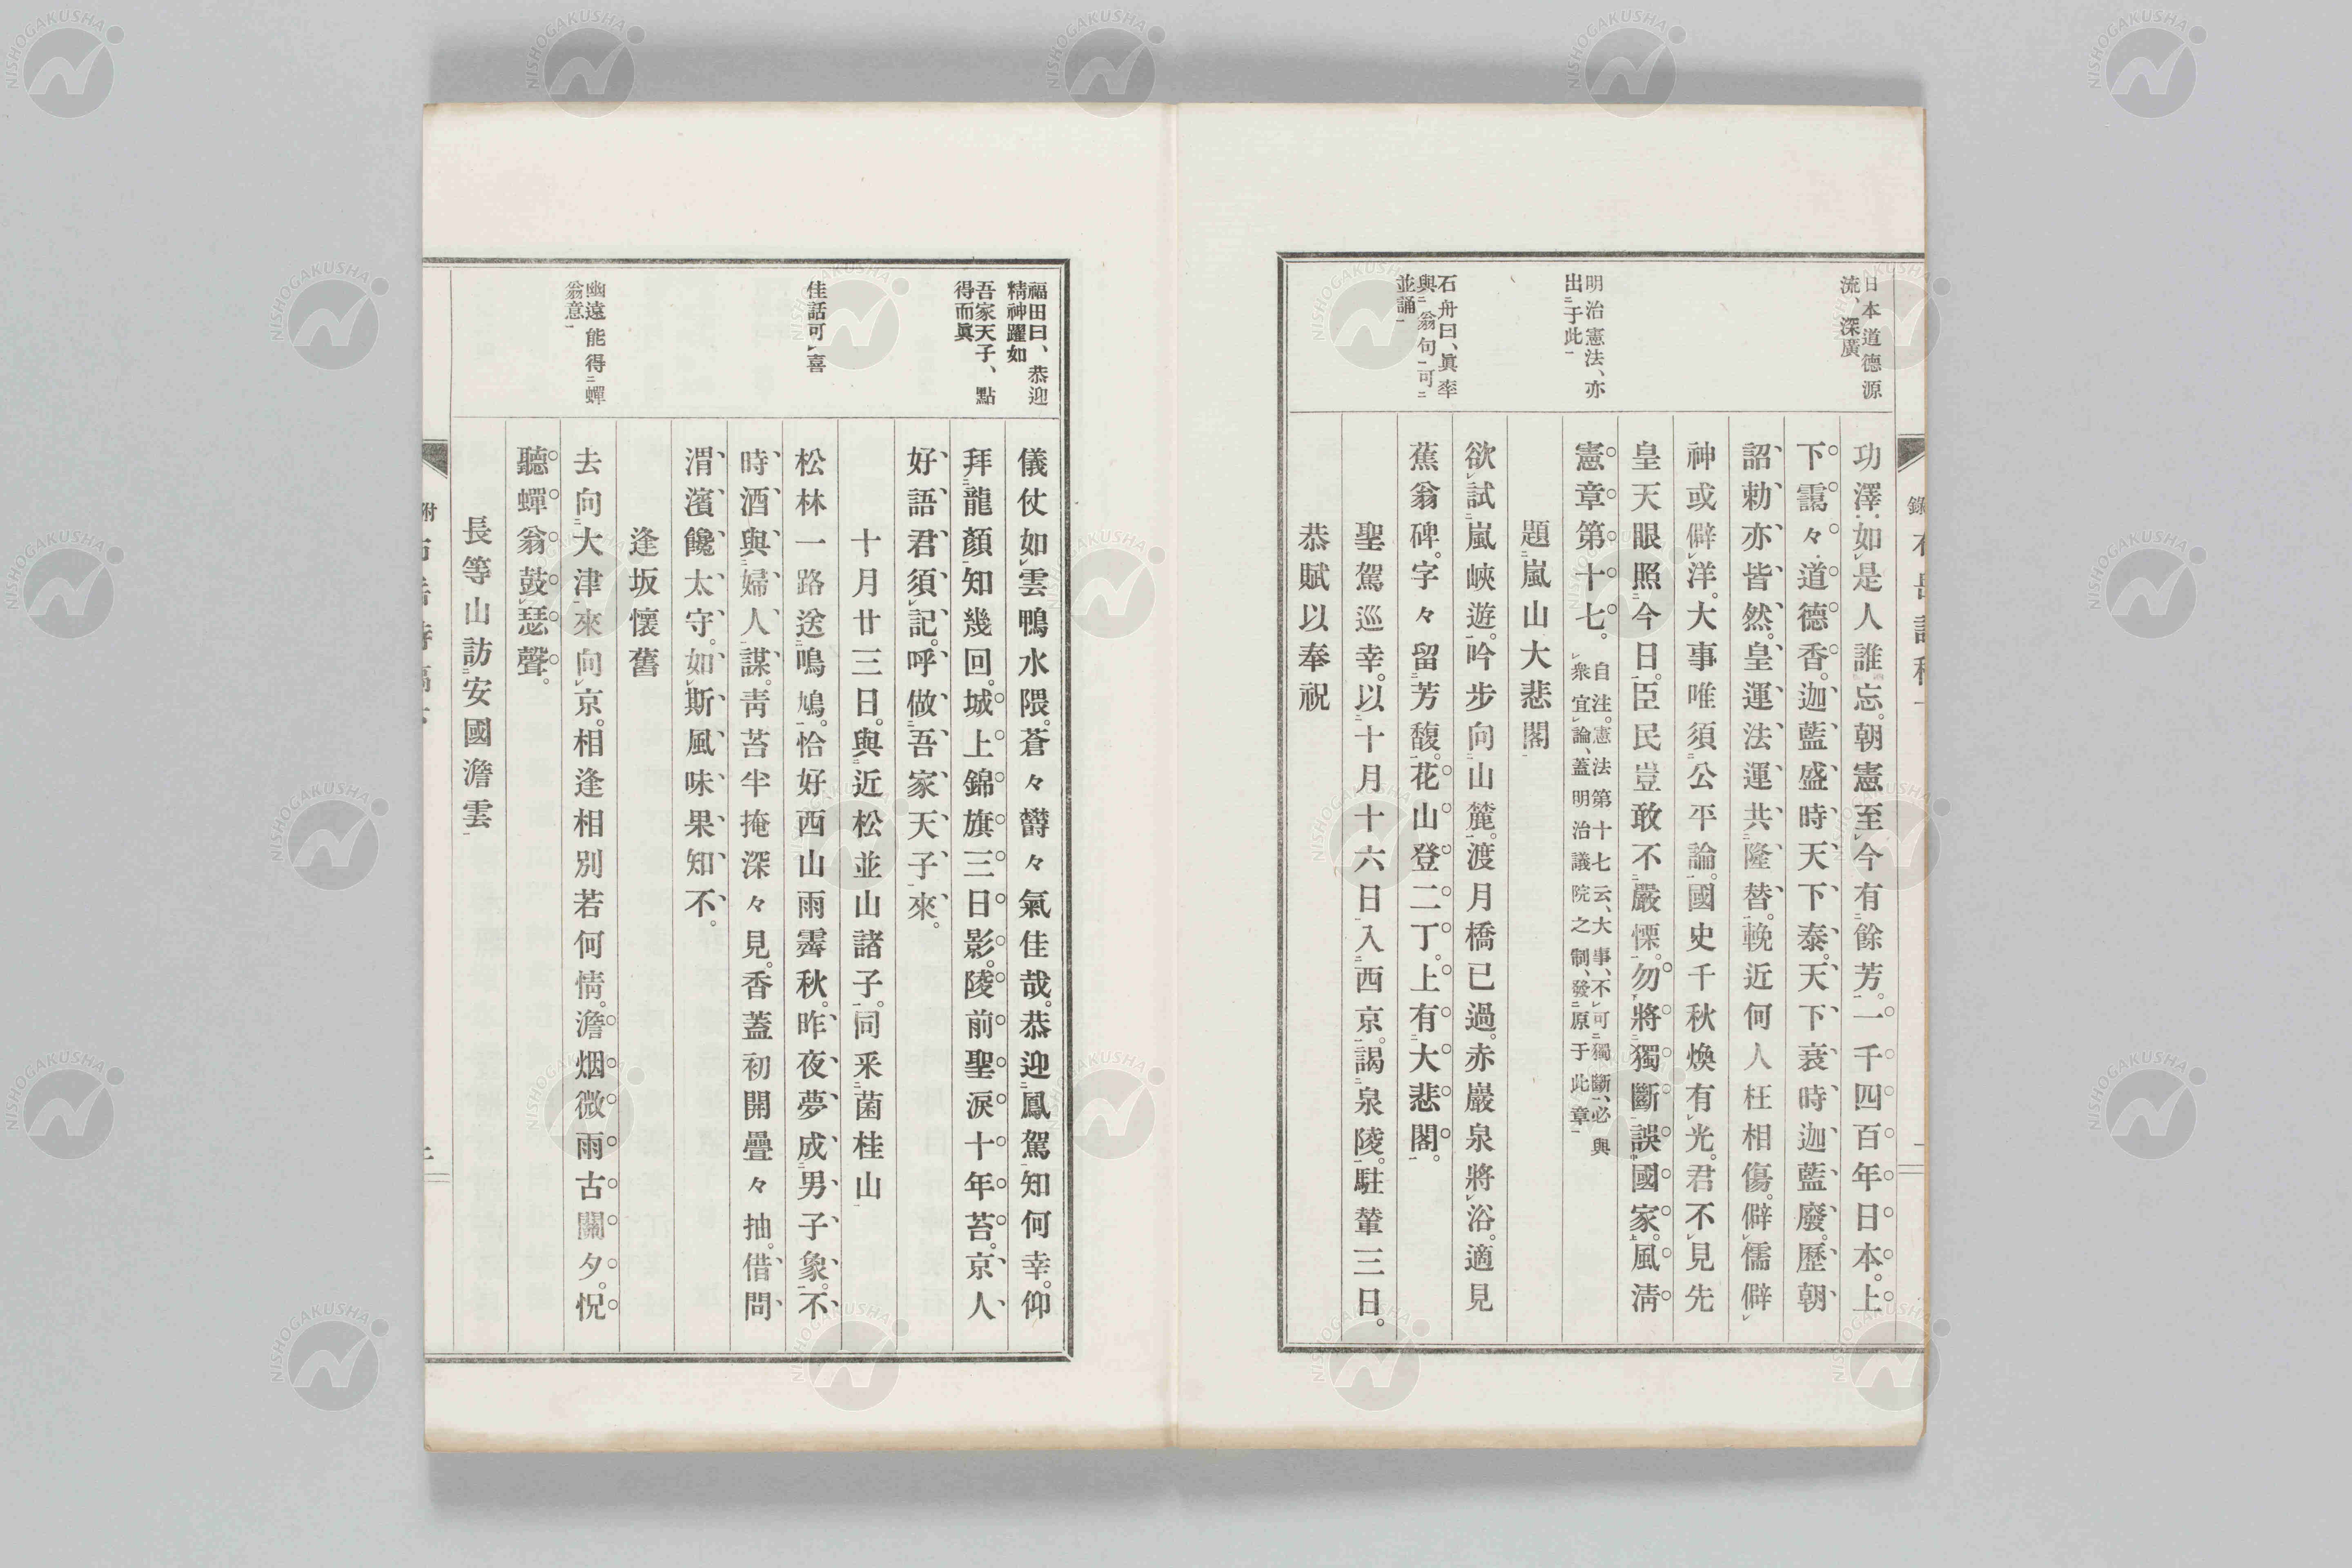 日本道德源
流、深廣
功澤如是人誰忘。朝憲至今有餘芳。一千四百年日本。上
下靄々道德香。迦藍盛時天下泰。天下衰時迦藍廢。歷朝
詔勅亦皆然。皇運法運共隆替。輓近何人枉相傷。僻儒僻
神或僻洋。大事唯須公平論。國史千秋煥有光。君不見先
皇天眼照今日。臣民豈敢不嚴慄。勿將獨斷誤國家。風淸
明治憲法、亦
出二于此一
憲章第十七。
自注。憲法第十七云、大事、不レ可二獨斷一、必與
レ衆宜レ論、蓋明治議院之制、發二原于此章一
題二嵐山大悲閣一
欲試嵐峽遊。吟步向山麓。渡月橋已過。赤巖泉將浴。適見
石舟曰、眞率
與二翁句一可二
並誦一
蕉翁碑。字々留芳馥。花山登二丁。上有大悲閣。
聖駕巡幸。以十月十六日入西京。謁泉陵。駐輦三日。
恭賦以奉祝
福田曰、恭迎
精神躍如
儀仗如雲鴨水隈。蒼々欝々氣佳哉。恭迎鳳駕知何幸。仰
吾家天子、點
得而眞
拜龍顏知幾回。城上錦旗三日影。陵前聖淚十年苔。京人
好語君須記。呼做吾家天子來。
十月廿三日。與近松並山諸子。同采菌桂山
佳話可レ喜
松林一路送鳴鳩。恰好西山雨霽秋。昨夜夢成男子象。不
時酒與婦人謀。靑苔半掩深々見。香蓋初開疊々抽。借問
渭濱饞太守。如斯風味果知不。
逢坂懷舊
幽遠能得二蟬
翁意一
去向大津來向京。相逢相別若何情。澹烟微雨古關夕。怳
聽蟬翁鼓瑟聲。
長等山訪安國澹雲